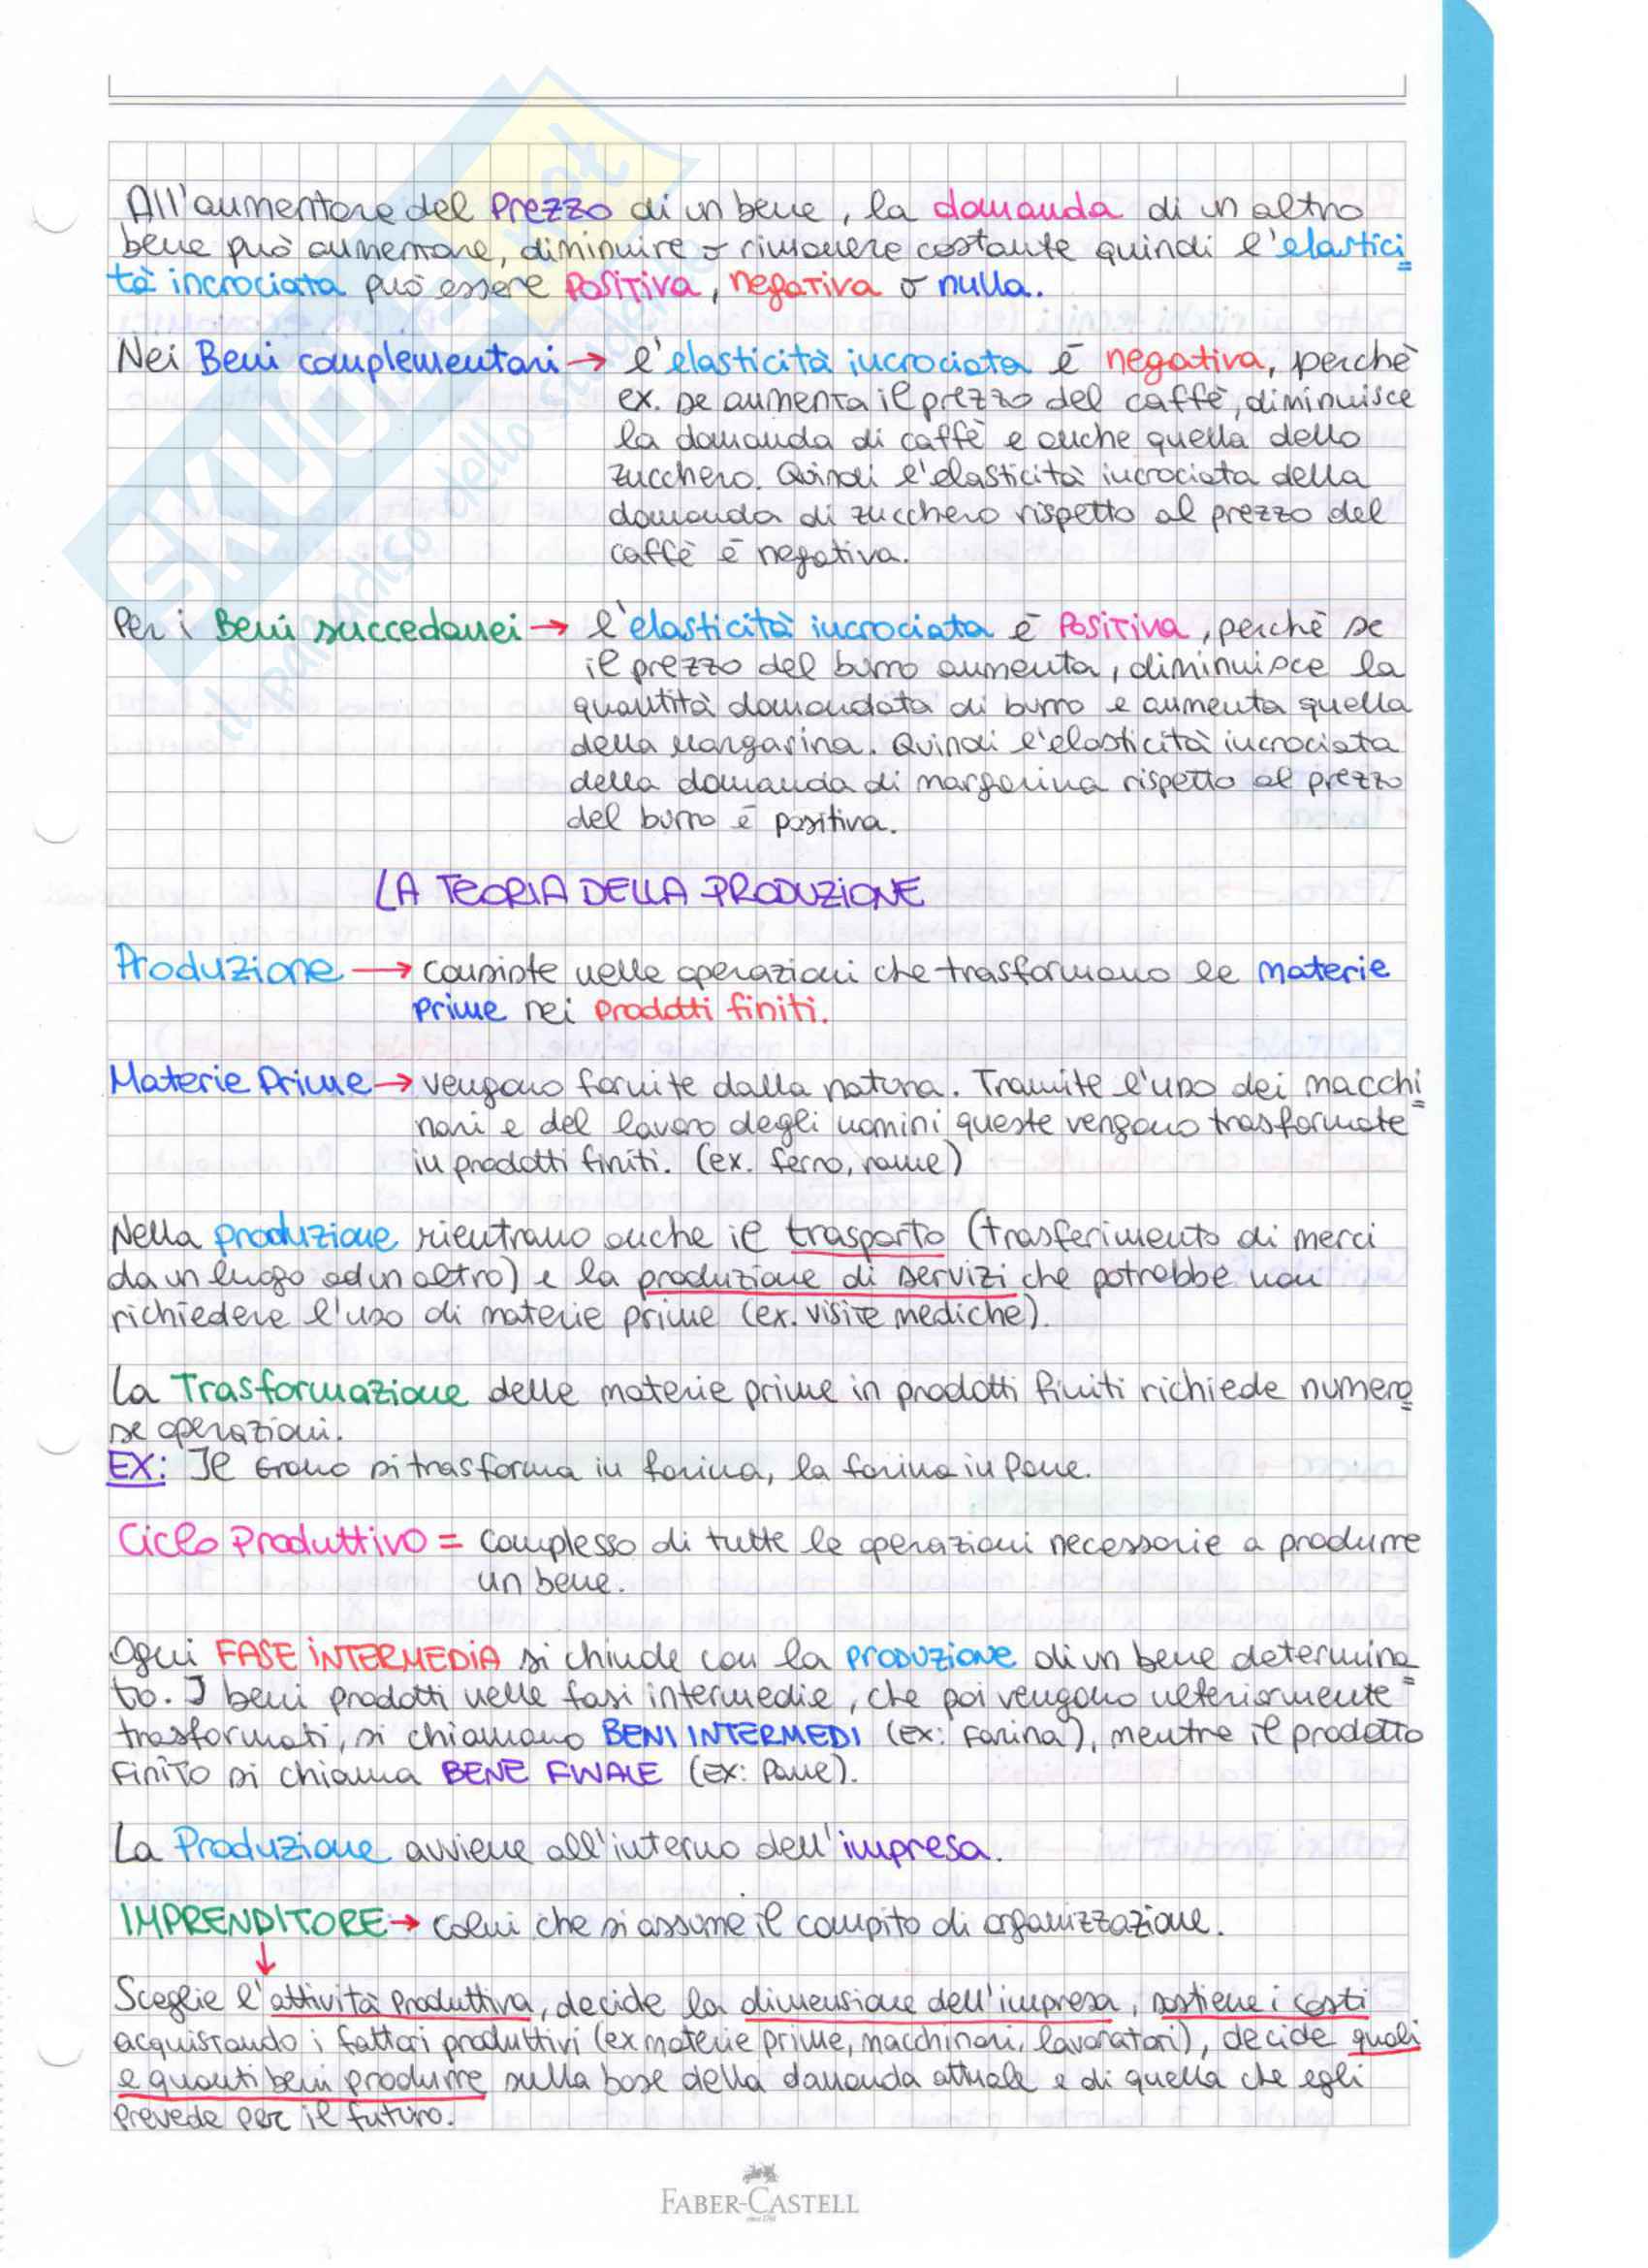 All'aumentare del prezzo di un bene, la domanda di un altro
bene può aumentare, diminuire o rimanere costante quindi l'elastici
tà incrociata può essere positiva, negativa o nulla.
Nei Beni complementari → l'elasticità incrociata è negativa, perchè
ex. se aumenta il prezzo del caffè, diminuisce
la domanda di caffè e anche quella dello
zucchero. Quindi l'elasticità incrociata della
domanda di zucchero rispetto al prezzo del
caffè è negativa.
Per i Beni succedanei → l'elasticità incrociata è positiva, perchè se
il prezzo del burro aumenta, diminuisce la
quantità domandata di burro e aumenta quella
della margarina. Quindi l'elasticità incrociata
della domanda di margarina rispetto al prezzo
del burro è positiva.
LA TEORIA DELLA PRODUZIONE
Produzione → consiste nelle operazioni che trasformano le materie
prime nei prodotti finiti.
Materie Prime → vengono fornite dalla natura. Tramite l'uso dei macchi
nari e del lavoro degli uomini queste vengono trasformate
in prodotti finiti. (ex. ferro, rame)
Nella produzione rientrano anche il trasporto (trasferimento di merci
da un luogo ad un altro) e la produzione di servizi che potrebbe non
richiedere l'uso di materie prime (ex. visite mediche).
La Trasformazione delle materie prime in prodotti finiti richiede numero
se operazioni.
EX: Il Grano si trasforma in farina, la farina in Pane.
Ciclo Produttivo = complesso di tutte le operazioni necessarie a produrre
un bene.
Ogni FASE INTERMEDIA si chiude con la PRODUZIONE di un bene determina
to. I beni prodotti nelle fasi intermedie, che poi vengono ulteriormente
trasformati, si chiamano BENI INTERMEDI (ex: Farina), mentre il prodotto
finito si chiama BENE FINALE (Ex: Pane).
La Produzione avviene all'interno dell'impresa.
IMPRENDITORE → colui che si assume il compito di organizzazione.
↓
Sceglie l'attività produttiva, decide la dimensione dell'impresa, sostiene i costi
acquistando i fattori produttivi (ex materie prime, macchinari, lavoratori), decide quali
e quanti beni produrre sulla base della domanda attuale e di quella che egli
prevede per il futuro.
FABER-CASTELL
SKUOLA.net
il paradiso dello studente